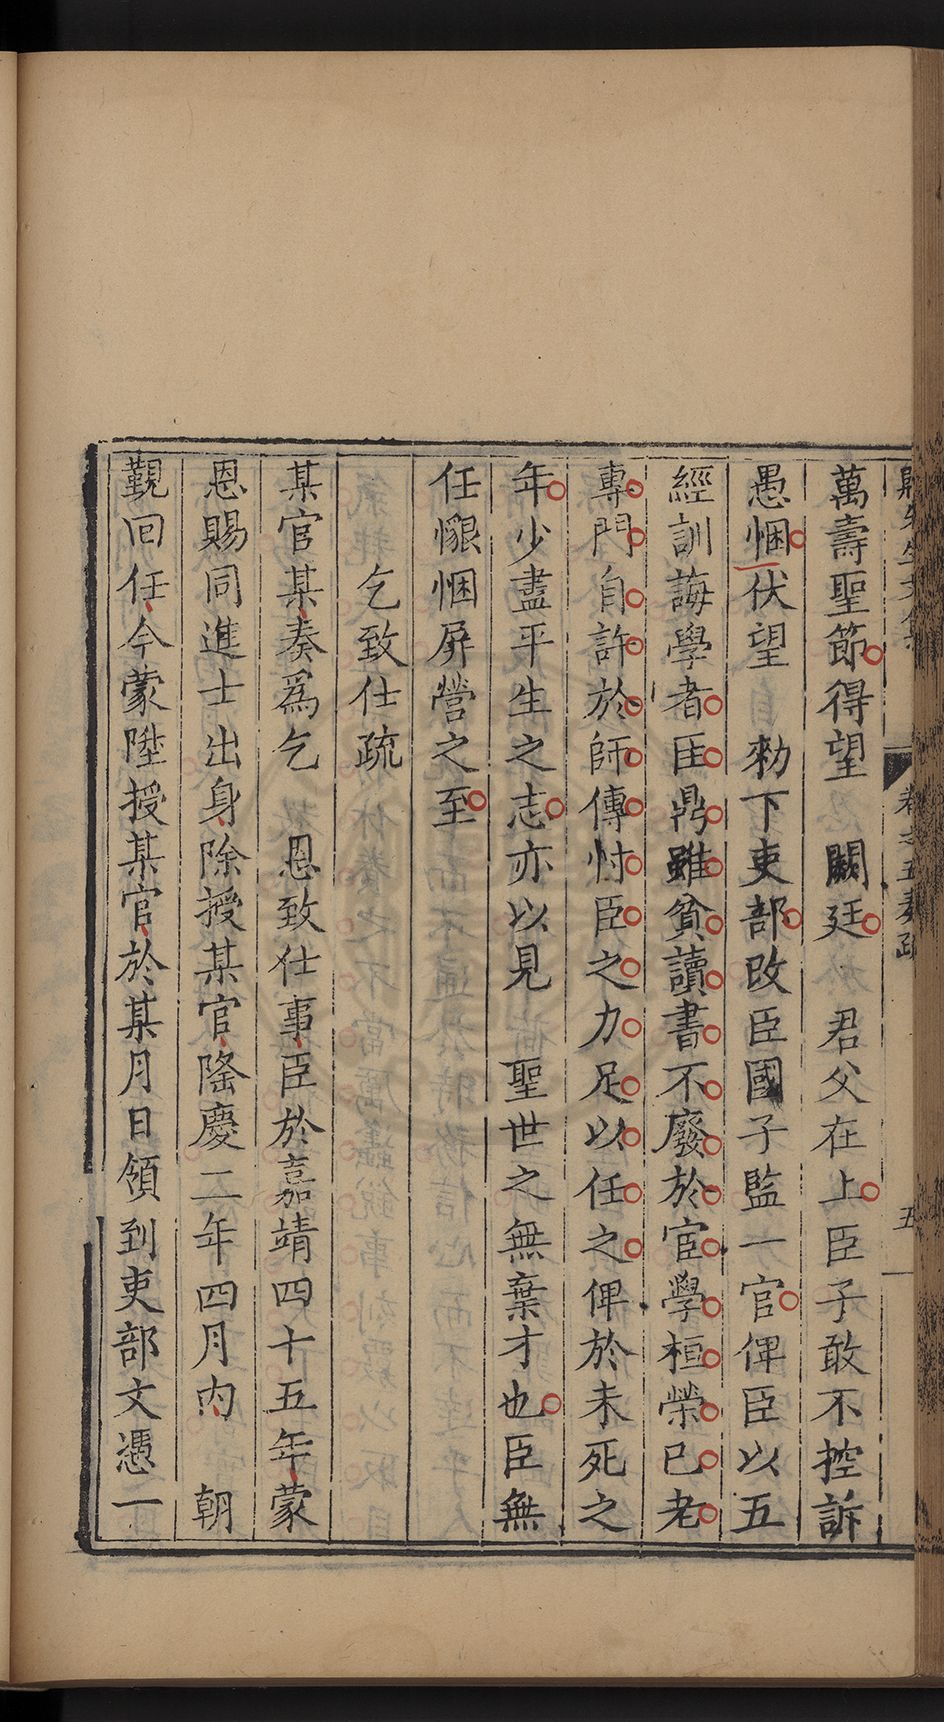 萬壽聖節得望 闕廷 君父在上臣子敢不控訴
愚悃伏望 勑下吏部改臣國子監一官俾臣以五
經訓誨學者匡鼎雖貧讀書不廢於宦學桓榮已老
專門自許於師傳忖臣之力足以任之俾於未死之
年少盡平生之志亦以見 聖世之無棄才也臣無
任懇悃屏營之至
乞致仕疏
某官某奏爲乞 恩致仕事臣於嘉靖四十五年蒙
恩賜同進士出身除授某官隆慶二年四月內 朝
覲回任今蒙陞授某官於某月日領到吏部文憑一